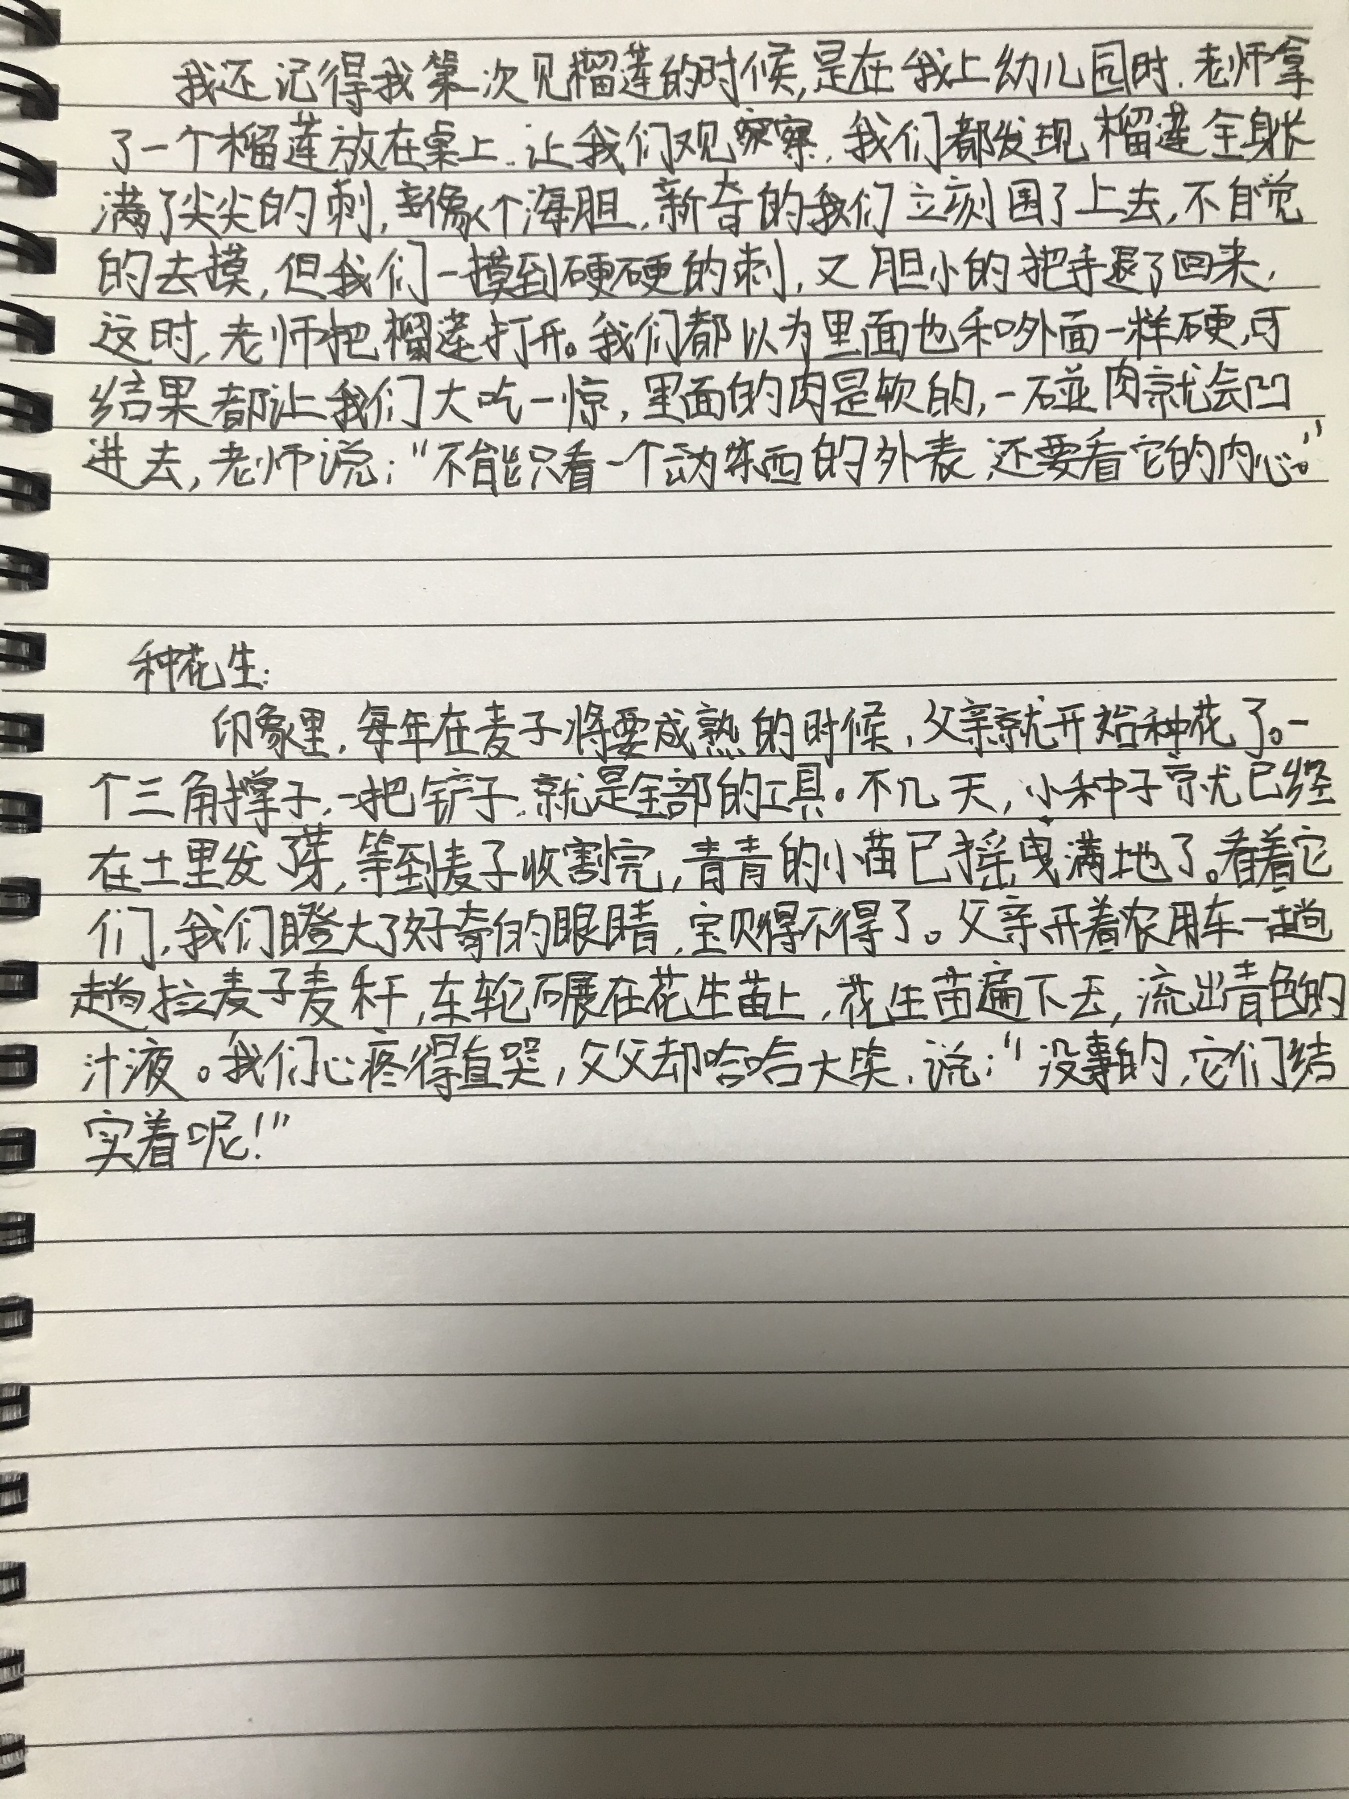 我还记得我第一次见榴莲的时候,是在我上幼儿园时.老师拿
了一个榴莲放在桌上.让我们观察.我们都发现榴莲全身长
满了尖尖的刺,像个海胆.新奇的我们立刻围了上去,不自觉
的去摸,但我们一摸到硬硬的刺,又胆小的把手退了回来,
这时,老师把榴莲打开。我们都以为里面也和外面一样硬,可
结果都让我们大吃一惊,里面的肉是软的,一碰肉就会凹
进去,老师说:“不能只看一个东西的外表,还要看它的内心。”
种花生:
印象里,每年在麦子将要成熟的时候,父亲就开始种花了。一
个三角撑子.一把铲子.就是全部的工具。不几天,小种子就已经
在土里发了芽,等到麦子收割完,青青的小苗已摇曳满地了。看着它
们,我们瞪大了好奇的眼睛,宝贝得不得了。父亲开着农用车一趟
趟拉麦子麦秆,车轮碾在花生苗上,花生苗遍下去,流出青色的
汁液。我们心疼得直哭,父父却哈哈大笑,说:“没事的,它们结
实着呢!”